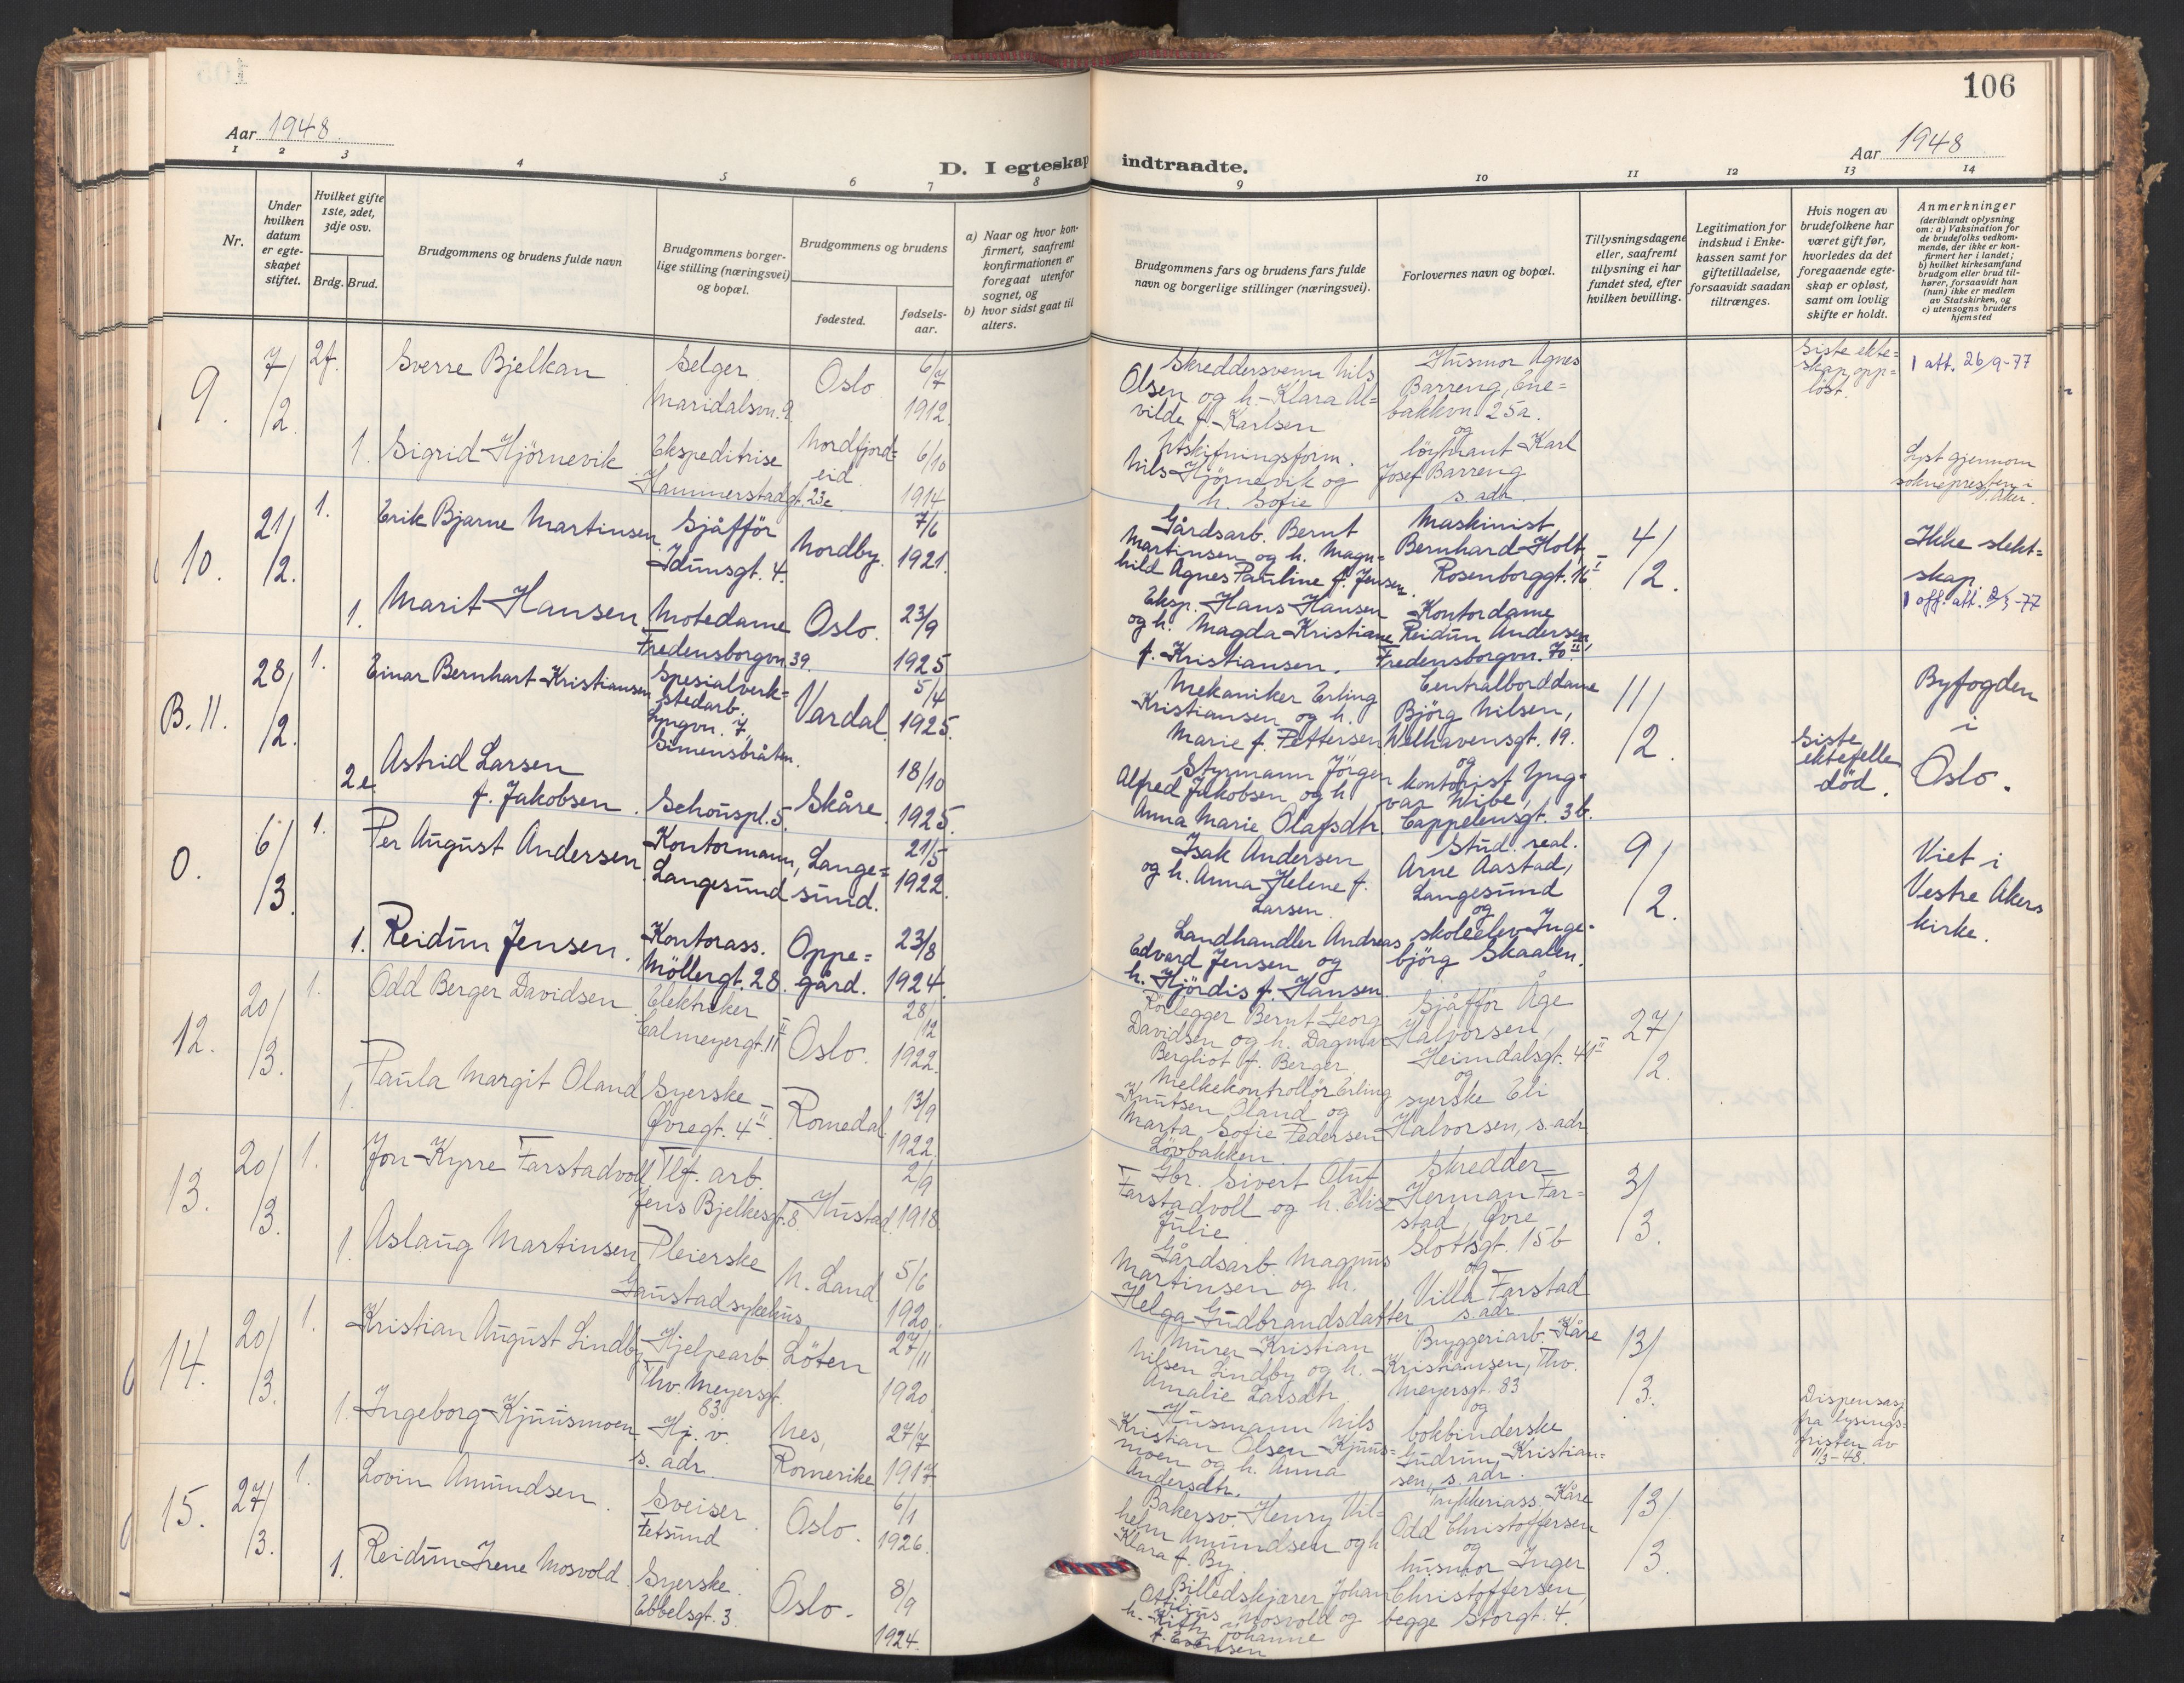 106
Aar 1948
Aar 1948
D. I egteskap indtraadte.
1 2 3 4 5 6 7 8 9 10 11 12 13 14
Nr.
Under
hvilken
datum
er egte-
skapet
stiftet.
Hvilket gifte
1ste, 2det,
3dje osv.
Brdg. Brud.
Brudgommens og brudens fulde navn
Brudgommens borger-
lige stilling (næringsvei)
og bopæl.
Brudgommens og brudens
fødested.
fødsels-
aar.
a) Naar og hvor kon-
firmert, saafremt
konfirmationen er
foregaat utenfor
sognet, og
b) hvor sidst gaat til
alters.
Brudgommens fars og brudens fars fulde
navn og borgerlige stillinger (næringsvei).
Forlovernes navn og bopæl.
Tillysningsdagene
eller, saafremt
tillysning ei har
fundet sted, efter
hvilken bevilling.
Legitimation for
indskud i Enke-
kassen samt for
giftetilladelse,
forsaavidt saadan
tiltrænges.
Hvis nogen av
brudefolkene har
været gift før,
hvorledes da det
foregaaende egte-
skap er opløst,
samt om lovlig
skifte er holdt.
Anmerkninger
(deriblandt oplysning
om: a) Vaksination for
de brudefolks vedkom-
mende, der ikke er kon-
firmert her i landet;
b) hvilket kirkesamfund
brudgom eller brud til-
hører, forsaavidt han
(hun) ikke er medlem
av Statskirken, og
c) utensogns bruders
hjemsted
9.
7/
/2.
2f.
Sverre Bjelkan
Selger
Maridalsvn. 9
Oslo
6/7
1912.
Skreddersvenn Nils
Olsen og h. Klara Al=
vilde f. Karlsen
Husmor Agnes
Barreng, Ene=
bakkvn. 25a.
og
Siste ekte=
skap opp=
løst.
1 att. 26/9-77
1.
Sigrid Hjörnevik
Ekspeditrise
Hammerstadgt. 23c.
Nordfjord=
eid.
6/10
1914
Utskiftningsform.
Nils Hjörnevik og
h. Sofie
löytnant Karl
Josef Barreng
s. adr.
Lyst gjennom
soknepresten i
Aker.
10.
21/
/2.
1.
Erik Bjarne Martinsen
Sjåfför
Idunsgt. 4.
Nordby.
7/6
1921.
Gårdsarb. Bernt
Martinsen og h. Magn=
hild Agnes Pauline f. Jensen.
Maskinist
Bernhard Holt,
Rosenborggt. 16 I
4/
/2.
Ikke slekt=
skap.
1 off. att. 2/3-77
1.
Marit Hansen
Motedame
Fredensborgvn. 39.
Oslo.
23/9
1925
Eksp. Hans Hansen
og h. Magda Kristiane
f. Kristiansen.
Kontordame
Reidun Andersen,
Fredensborgvn. 70 II
B. 11.
28/
/2.
1.
Einar Bernhart Kristiansen
Spesialverk=
stedarb.
Lyngvn. 7,
Simensbråten.
Vardal
5/4
1925.
Mekaniker Erling
Kristiansen og h.
Marie f. Pettersen
Centralborddame
Björg Nilsen,
Welhavensgt. 19.
og
11/
/2.
Byfogden
i
Oslo.
2 e.
Astrid Larsen
f. Jakobsen.
Schouspl. 5.
Skåre
18/10
1925.
Styrmann Jörgen
Alfred Jakobsen og h.
Anna Marie Olafsdtr.
kontorist Yng=
var Wibe,
Cappelensgt. 3b.
Siste
ektefelle
död.
0.
6/
/3.
1.
Per August Andersen
Kontormann,
Langesund
Lange=
sund.
21/5
1922.
Isak Andersen
og h. Anna Helene f.
Larsen.
Stud. real.
Arne Aastad,
Langesund
og
9/
/2.
Viet i
Vestre Akers
kirke.
1.
Reidun Jensen.
Kontorass.
Möllergt. 28.
Oppe=
gård.
23/8
1924.
Landhandler Andreas
Edvard Jensen og
h. Hjördis f. Hansen.
skoleelev Inge=
björg Skaalen.
12.
20/
/3.
1.
Odd Berger Davidsen
Elektriker
Calmeyergt. 11 II
Oslo.
28/
/12
1922.
Rörlegger Bernt Georg
Davidsen og h. Dagmar
Bergliot f. Berger
Sjåfför Åge
Halvorsen,
Heimdalsgt. 41 II
og
27/
/2.
1.
Paula Margit Oland
Syerske
Övregt. 4 II.
Romedal
13/9
1922.
Melkekontrollör Erling
Knutsen Oland og
Marta Sofie Pedersen
Lövbakken.
syerske Eli
Halvorsen, s. adr.
13.
20/
/3.
1.
Jon Kyrre Farstadvoll
Tlf. arb.
Jens Bjelkesgt. 8
Hustad
2/9
1918.
Gbr. Sivert Oluf
Farstadvoll og h. Elise
Julie
Skredder
Herman Far=
stad, Övre
Slottsgt. 15b
og
3/
/3.
1.
Aslaug Martinsen
Pleierske
Gaustad sykehus.
N. Land.
5/6
1920.
Gårdsarb. Magnus
Martinsen og h.
Helga Gudbrandsdatter
Villa Farstad
s. adr.
14.
20/
/3.
1.
Kristian August Lindby
Hjelpearb.
Thv. Meyersgt.
83.
Löten
27/11
1920.
Murer Kristian
Nilsen Lindby og h.
Amalie Larsdtr.
Bryggeriarb. Kåre
Kristiansen, Thv.
Meyersgt. 83
og
13/
/3.
Dispensasj.
fra lysings=
fristen av
11/3-48.
1.
Ingeborg Kjuusmoen
Hj. v.
s. adr.
Nes,
Romerike
27/7
1917
Husmann Nils
Kristian Olsen Kjuus=
moen og h. Anna
Andersdtr.
bokbinderske
Gudrun Kristian=
sen, s. adr.
15.
27/
/3.
1.
Lovin Amundsen.
Sveiser
Fetsund
Oslo.
6/1
1926.
Bakersv. Henry Vil=
helm Amundsen og h.
Klara f. By.
Trykkeriass. Kåre
Odd Christoffersen
og
13/
/3.
1.
Reidun Irene Mosvold.
Syerske.
Ebbelsgt. 3.
Oslo.
8/9
1924.
Billedskjærer Johan
Ottilius Mosvold og
h. Kitty Johanne
f. Evensen
husmor Inger
Christoffersen,
begge Storgt. 4.